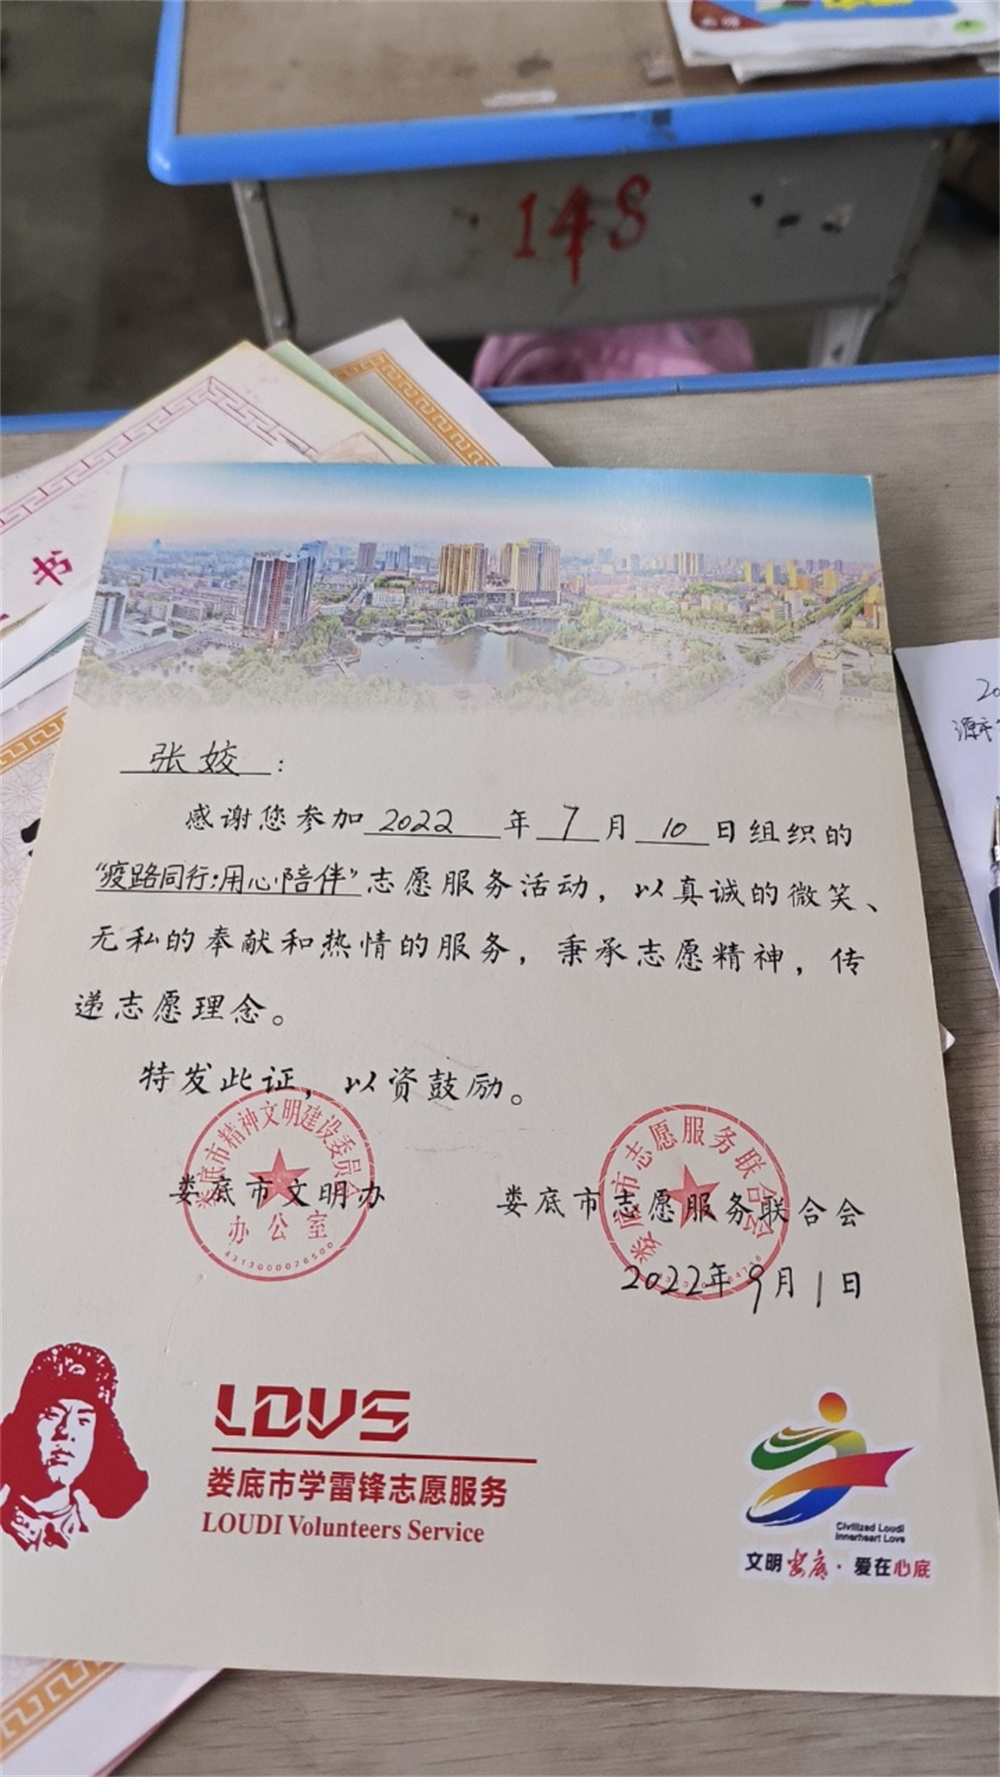 148
书
张姣：
感谢您参加2022年7月10日组织的
“疫路同行：用心陪伴”志愿服务活动，以真诚的微笑、
无私的奉献和热情的服务，秉承志愿精神，传
递志愿理念。
特发此证，以资鼓励。
娄底市精神文明建设委员会
办公室
4313000076500
娄底市文明办
娄底市志愿服务联合会
娄底市志愿服务联合会
2022年9月1日
LDVS
娄底市学雷锋志愿服务
LOUDI Volunteers Service
Civilized Loudi
Innerheart Love
文明娄底·爱在心底
20